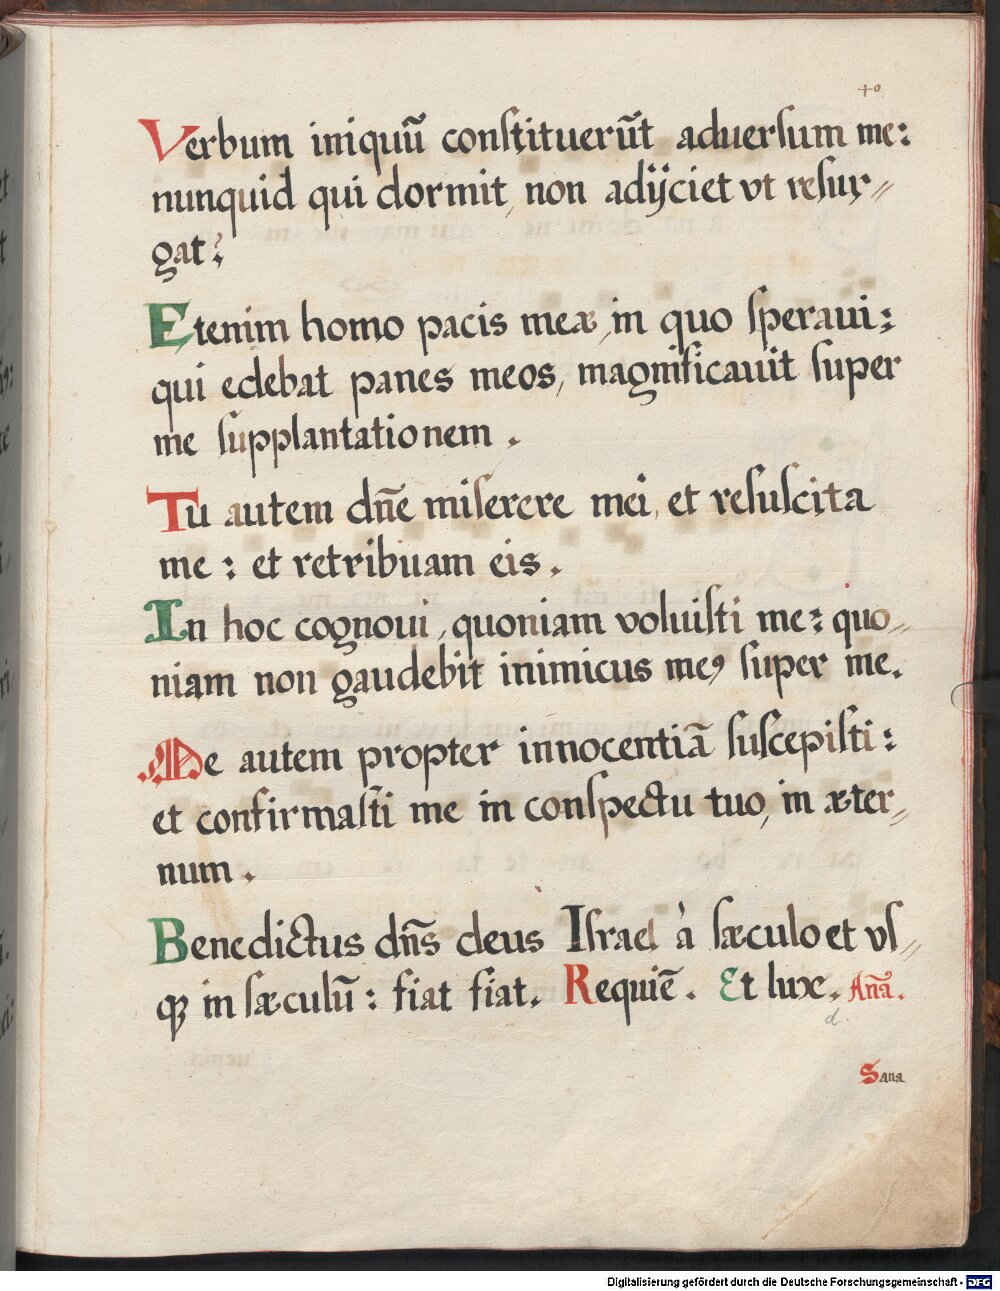 40
Verbum iniquū conſtituerūt aduerſum me:
nunquid qui dormit, non adijciet vt reſur⸗
gat?
Etenim homo pacis meæ, in quo ſperaui:
qui edebat panes meos, magnificauit ſuper
me ſupplantationem.
Tu autem dn̄e miſerere mei, et reſuscita
me: et retribuam eis.
In hoc cognoui, quoniam voluiſti me: quo⸗
niam non gaudebit inimicus meꝰ ſuper me.
Me autem propter innocentiā ſuſcepiſti:
et confirmaſti me in conſpectu tuo, in æter⸗
num.
Benedictus dn̄s deus Iſrael à ſæculo et vſ⸗
qꝫ in ſæculū: fiat fiat. Requiē. Et lux. Añā.
d.
Sana
Digitalisierung gefördert durch die Deutsche Forschungsgemeinschaft - DFG